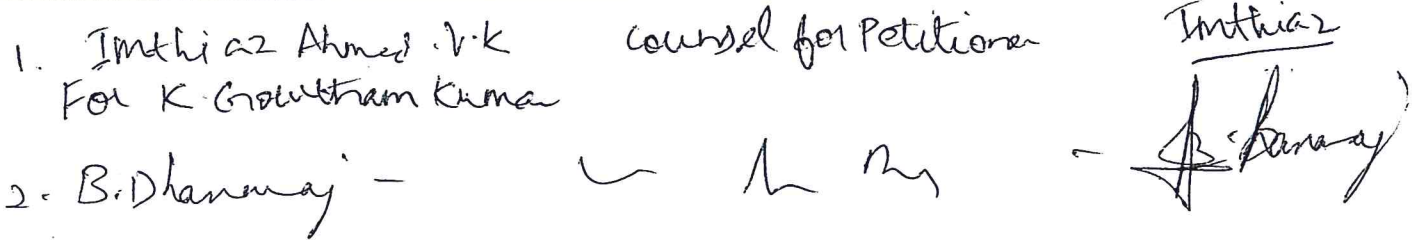 1. Imthiaz Ahmed .V.K counsel for Petitioner Imthiaz
For K. Gowtham Kumar
2. B. Dhanaraj - - B. Dhanaraj